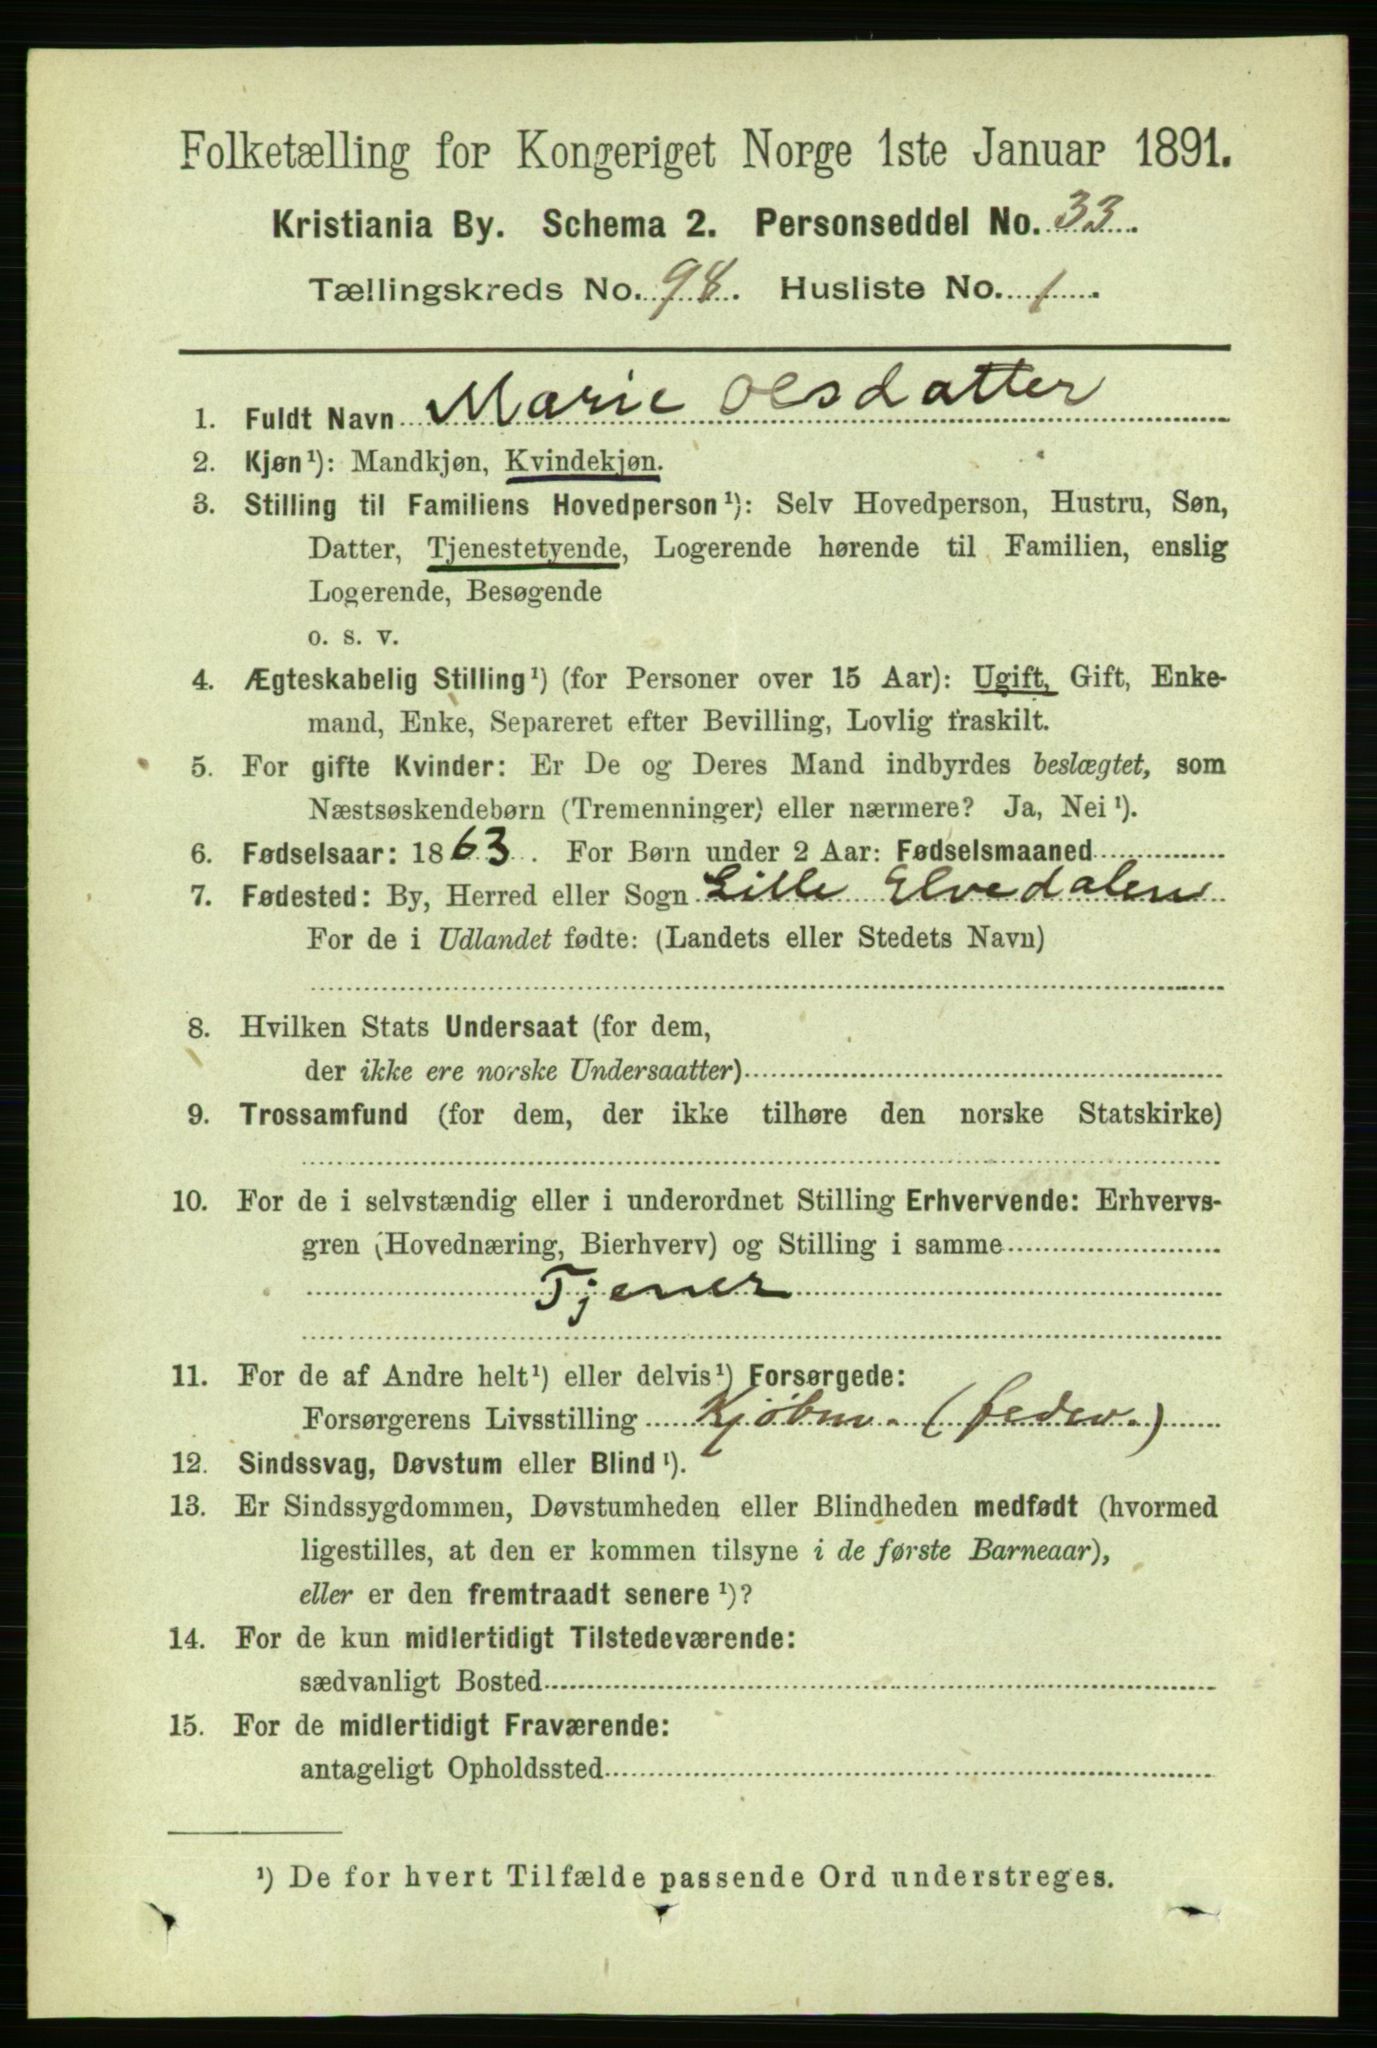 Folketælling for Kongeriget Norge 1ste Januar 1891.
Kristiania By. Schema 2. Personseddel No. 33.
Tællingskreds No. 98. Husliste No. 1.
1. Fuldt Navn Marie Olsdatter
2. Kjøn¹): Mandkjøn, Kvindekjøn.
3. Stilling til Familiens Hovedperson¹): Selv Hovedperson, Hustru, Søn,
Datter, Tjenestetyende, Logerende hørende til Familien, enslig
Logerende, Besøgende
o. s. v.
4. Ægteskabelig Stilling¹) (for Personer over 15 Aar): Ugift, Gift, Enke-
mand, Enke, Separeret efter Bevilling, Lovlig fraskilt.
5. For gifte Kvinder: Er De og Deres Mand indbyrdes beslægtet, som
Næstsøskendebørn (Tremenninger) eller nærmere? Ja, Nei¹).
6. Fødselsaar: 1863. For Børn under 2 Aar: Fødselsmaaned
7. Fødested: By, Herred eller Sogn Lille Elvedalen
For de i Udlandet fødte: (Landets eller Stedets Navn)
8. Hvilken Stats Undersaat (for dem,
der ikke ere norske Undersaatter)
9. Trossamfund (for dem, der ikke tilhøre den norske Statskirke)
10. For de i selvstændig eller i underordnet Stilling Erhvervende: Erhvervs-
gren (Hovednæring, Bierhverv) og Stilling i samme
Tjener
11. For de af Andre helt¹) eller delvis¹) Forsørgede:
Forsørgerens Livsstilling Kjøbm.
12. Sindssvag, Døvstum eller Blind¹).
13. Er Sindssygdommen, Døvstumheden eller Blindheden medfødt (hvormed
ligestilles, at den er kommen tilsyne i de første Barneaar),
eller er den fremtraadt senere¹)?
14. For de kun midlertidigt Tilstedeværende:
sædvanligt Bosted
15. For de midlertidigt Fraværende:
antageligt Opholdssted
¹) De for hvert Tilfælde passende Ord understreges.